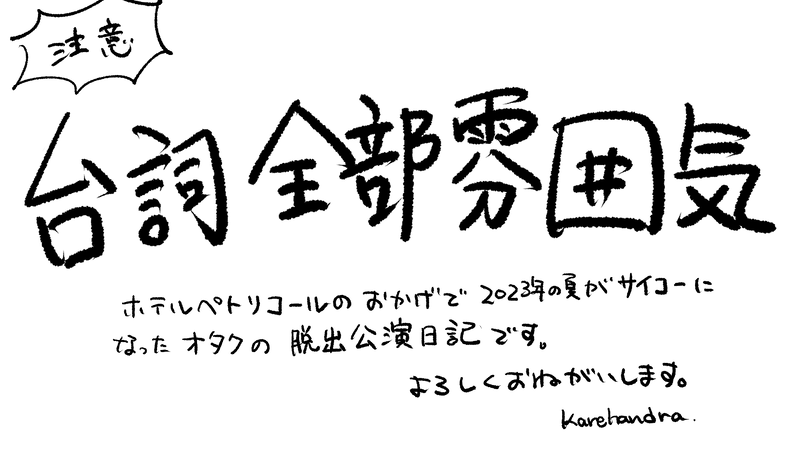 注意
台詞全部雰囲気
ホテルペトリコールのおかげで2023年の夏がサイコーに
なったオタクの脱出公演日記です。
よろしくおねがいします。
Karehandra.